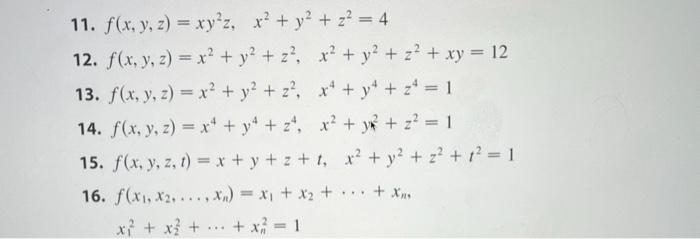 11. f(x, y, z) = xy²z, x² + y² + z² = 4
12. f(x, y, z) = x² + y² + z², x² + y² + z² + xy = 12
13. f(x, y, z) = x² + y² + z², x⁴ + y⁴ + z⁴ = 1
14. f(x, y, z) = x⁴ + y⁴ + z⁴, x² + y² + z² = 1
15. f(x, y, z, t) = x + y + z + t, x² + y² + z² + t² = 1
16. f(x₁, x₂, . . . , xₙ) = x₁ + x₂ + · · · + xₙ,
x₁² + x₂² + · · · + xₙ² = 1